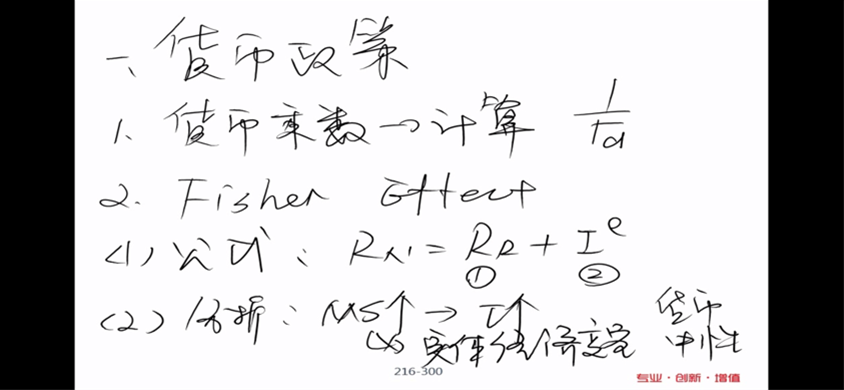 一、货币政策
1. 货币乘数→计算 1/rd
2. Fisher Effect
(1) 公式: RN = RR + Ie
① ②
(2) 分析: MS↑ → I↑ 货币
(×) 实体经济变量 中性
216-300
专业·创新·增值